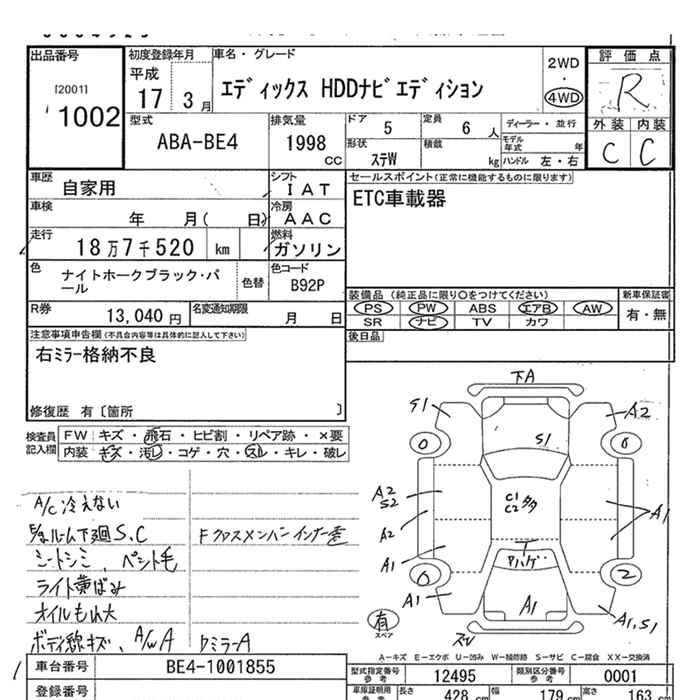 出品番号
[2001]
1002
初度登録年月
平成
17 3 月
車名・グレード
エディックス HDDナビエディション
2WD
・
4WD
評価点
R
外装 内装
C C
型式
ABA-BE4
排気量
1998
CC
ドア 5
定員 6 人
ディーラー・並行
形状 ステW
積載 kg
モデル年式 年
ハンドル 左・右
車歴
自家用
シフト
IAT
セールスポイント(正常に機能するものに限ります)
ETC車載器
車検
年 月( 日)
冷房
AAC
走行
18万7千520 km
燃料
ガソリン
色
ナイトホークブラック・パール
色替
色コード
B92P
装備品 (純正品に限り○をつけてください)
新車保証書
PS PW ABS エアB AW
SR ナビ TV カワ
有・無
R券
13,040 円
名変通知期限
月 日
後日品
注意事項申告欄(不具合内容等は具体的に記入して下さい)
右ミラー格納不良
修復歴 有〔箇所 〕
検査員
記入欄
FW キズ・飛石・ヒビ割・リペア跡・×要
内装 キズ・汚レ・コゲ・穴・スレ・キレ・破レ
A/C冷えない
ルーム下廻S.C
シートシミ、ペット毛
ライト黄ばみ
オイルもれ大
ボディ線キズ、A/WA
Fクロスメンバーインナー歪
クミラーA
下A
S1
A2
0
6
S1
A2
S2
C1
C2
多
A2
A1
A1
0
2
A1
A1
A1,S1
有
スペア
A−キズ E−エクボ U−凹み W−補修跡 S−サビ C−腐食 XX−交換済
車台番号
BE4-1001855
型式指定番号
参考
12495
類別区分番号
参考
0001
登録番号
車庫証明用
参考
長さ
428 cm
幅
179 cm
高さ
163 cm